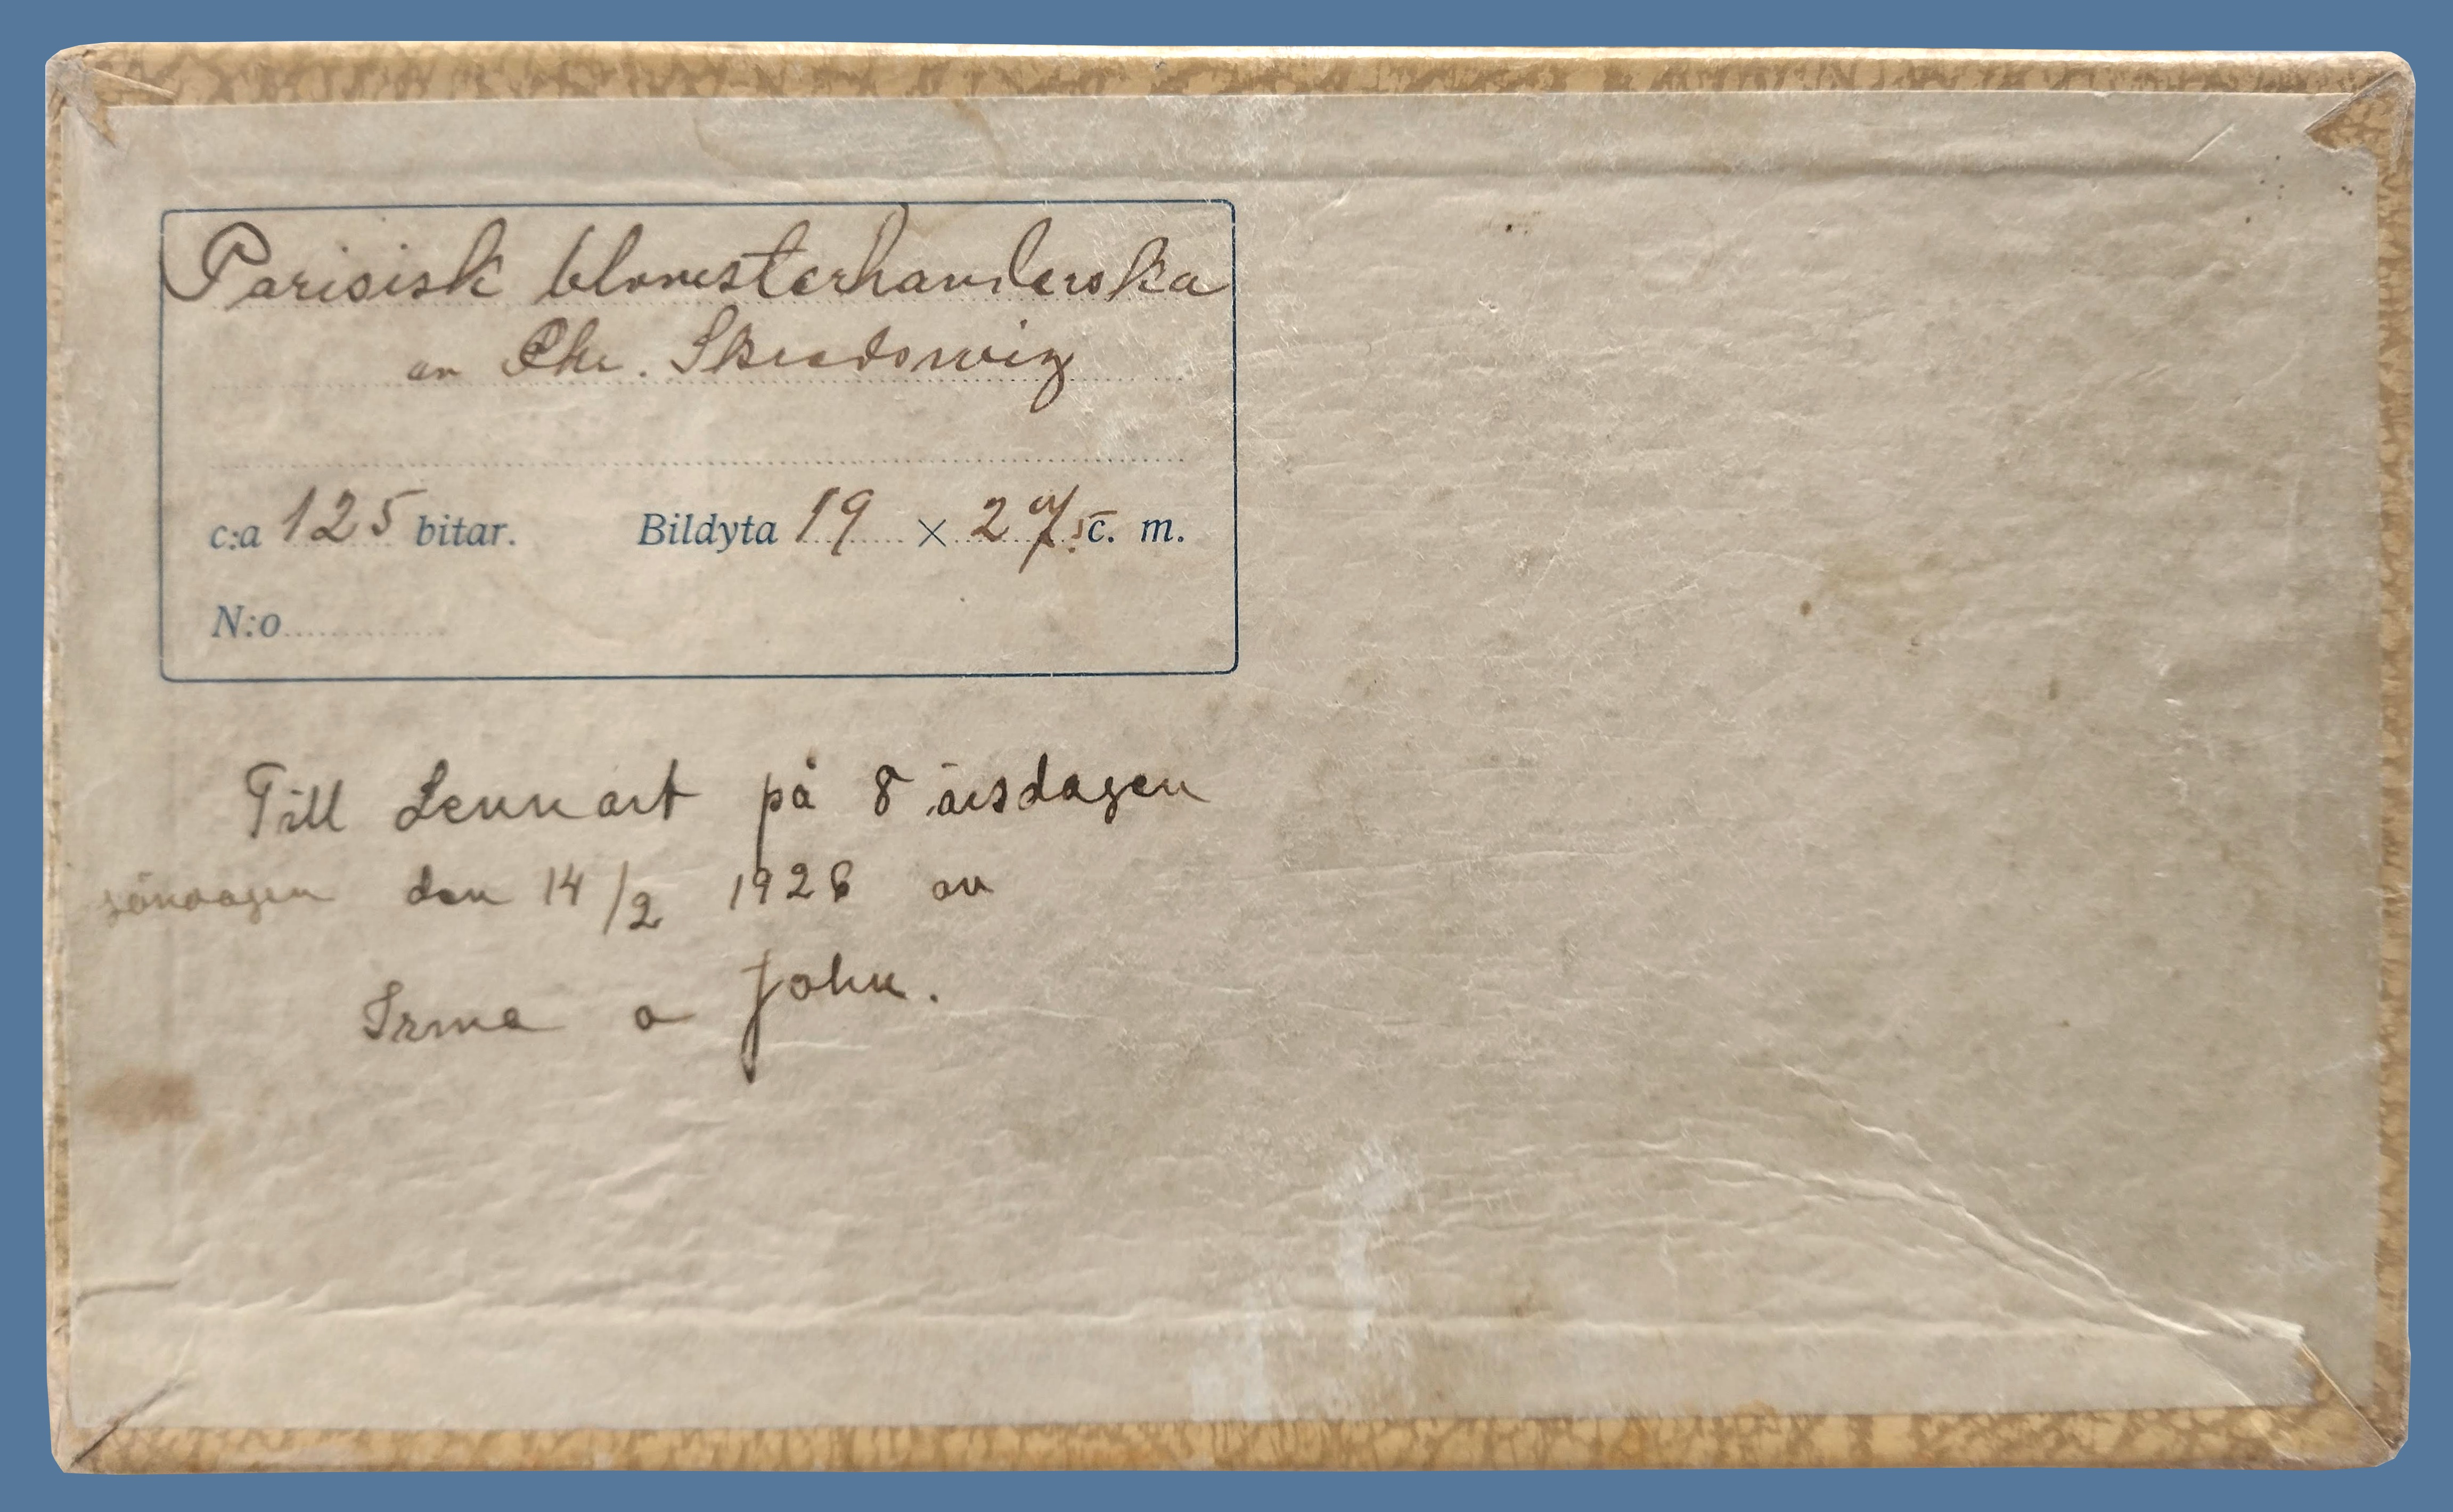 Parisisk blomsterhandlerska
av Chr.
c:a 125 bitar. Bildyta 19 × 27,5 c. m.
N:o
Till Lennart på 8 årsdagen
söndagen den 14/2 1926 av
Irma o John.